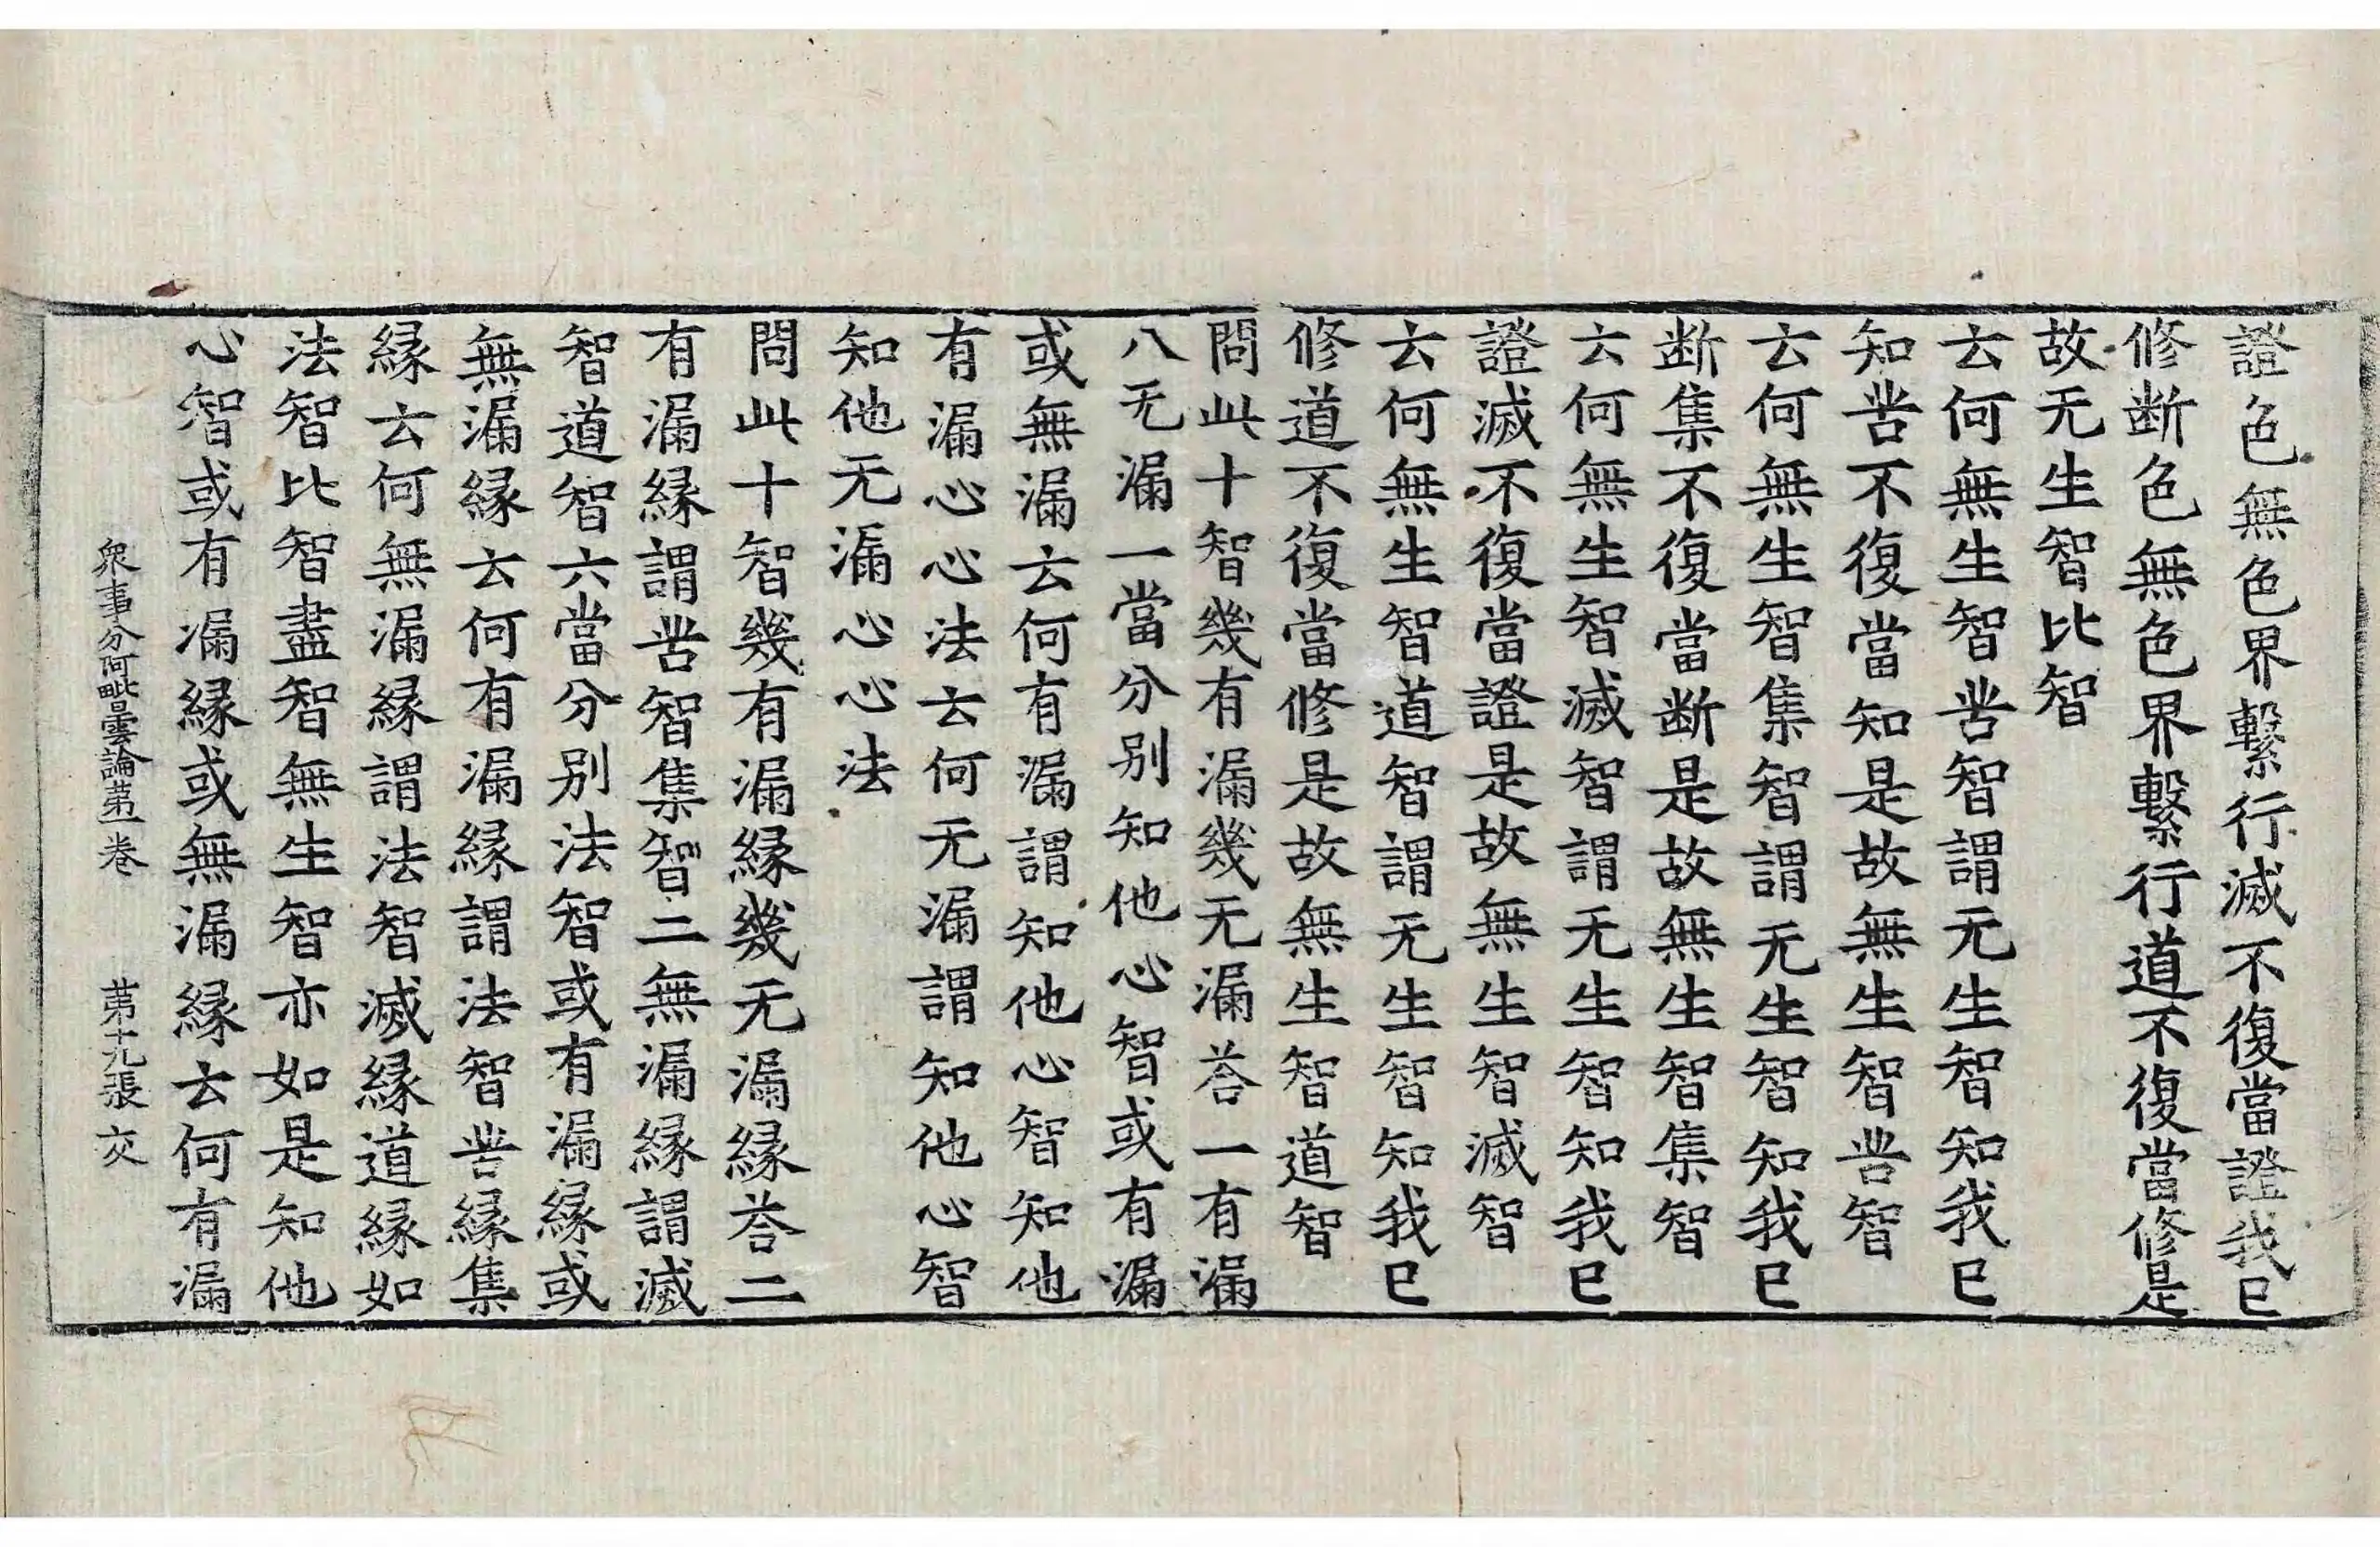 證色無色界繫行滅不復當證我已
修断色無色界繫行道不復當修是
故无生智比智
云何無生智苦智謂无生智知我已
知苦不復當知是故無生智苦智
云何無生智集智謂无生智知我已
断集不復當断是故無生智集智
云何無生智滅智謂无生智知我已
證滅不復當證是故無生智滅智
云何無生智道智謂无生智知我已
修道不復當修是故無生智道智
問此十智幾有漏幾无漏荅一有漏
八无漏一當分别知他心智或有漏
或無漏云何有漏謂知他心智知他
有漏心心法云何无漏謂知他心智
知他无漏心心法
問此十智幾有漏緣幾无漏緣荅二
有漏緣謂苦智集智二無漏緣謂滅
智道智六當分别法智或有漏緣或
無漏緣云何有漏緣謂法智苦緣集
緣云何無漏緣謂法智滅緣道緣如
法智比智盡智無生智亦如是知他
心智或有漏緣或無漏緣云何有漏
衆事分阿毗曇論苐一卷 苐十九張 交